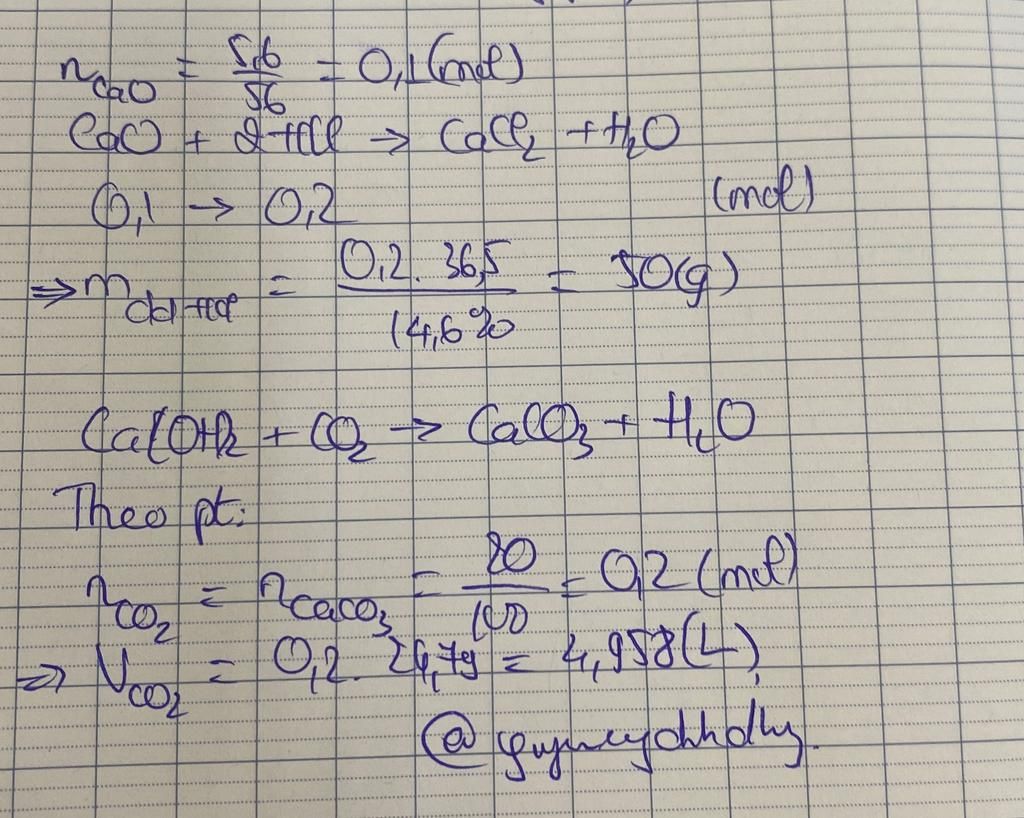 n_CaO = 5,6/56 = 0,1 (mol)
CaO + 2HCl → CaCl₂ + H₂O
0,1 → 0,2 (mol)
⇒ m_dd HCl = 0,2 . 36,5/14,6% = 50 (g)
Ca(OH)₂ + CO₂ → CaCO₃ + H₂O
Theo pt:
n_CO₂ = n_CaCO₃ = 20/100 = 0,2 (mol)
⇒ V_CO₂ = 0,2 . 24,79 = 4,958 (L)
@